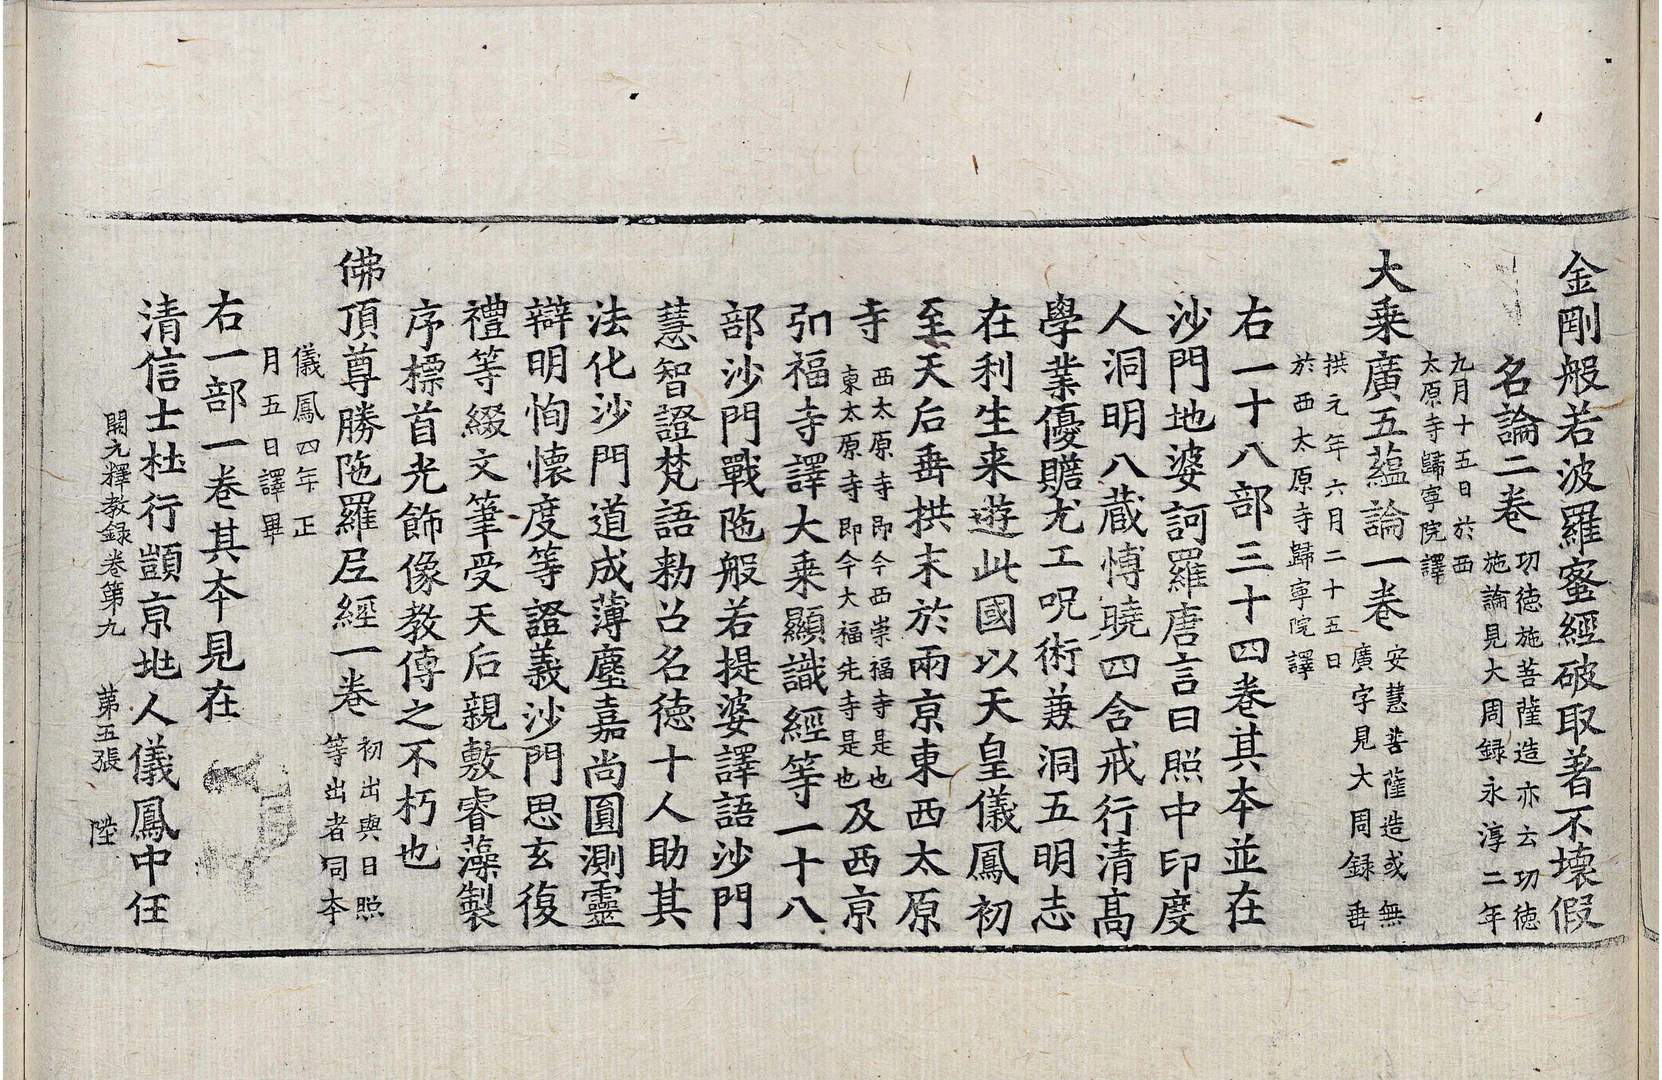 金剛般若波羅蜜經破取著不壞假
名論二卷功德施菩薩造亦云功德
施論見大周録永淳二年
九月十五日於西
太原寺歸寧院譯
大乗廣五蘊論一卷安慧菩薩造或無
廣字見大周録垂
拱元年六月二十五日
於西太原寺歸寧院譯
右一十八部三十四卷其夲並在
沙門地婆訶羅唐言日照中印度
人洞明八藏博曉四含戒行清髙
學業優贍尤工呪術兼洞五明志
在利生来遊此國以天皇儀鳳初
至天后垂拱末於兩京東西太原
寺西太原寺即今西崇福寺是也
東太原寺即今大福先寺是也及西京
弘福寺譯大乗顯識經等一十八
部沙門戰陁般若提婆譯語沙門
慧智證梵語勑召名德十人助其
法化沙門道成薄塵嘉尚圓測靈
辯明恂懐度等證義沙門思玄復
禮等綴文筆受天后親敷睿藻製
序標首光飾像教傳之不朽也
佛頂尊勝陁羅尼經一卷初出與日照
等出者同夲
儀鳳四年正
月五日譯畢
右一部一卷其夲見在
清信士杜行顗京地人儀鳳中任
開元釋教録卷第九 第五張 陛